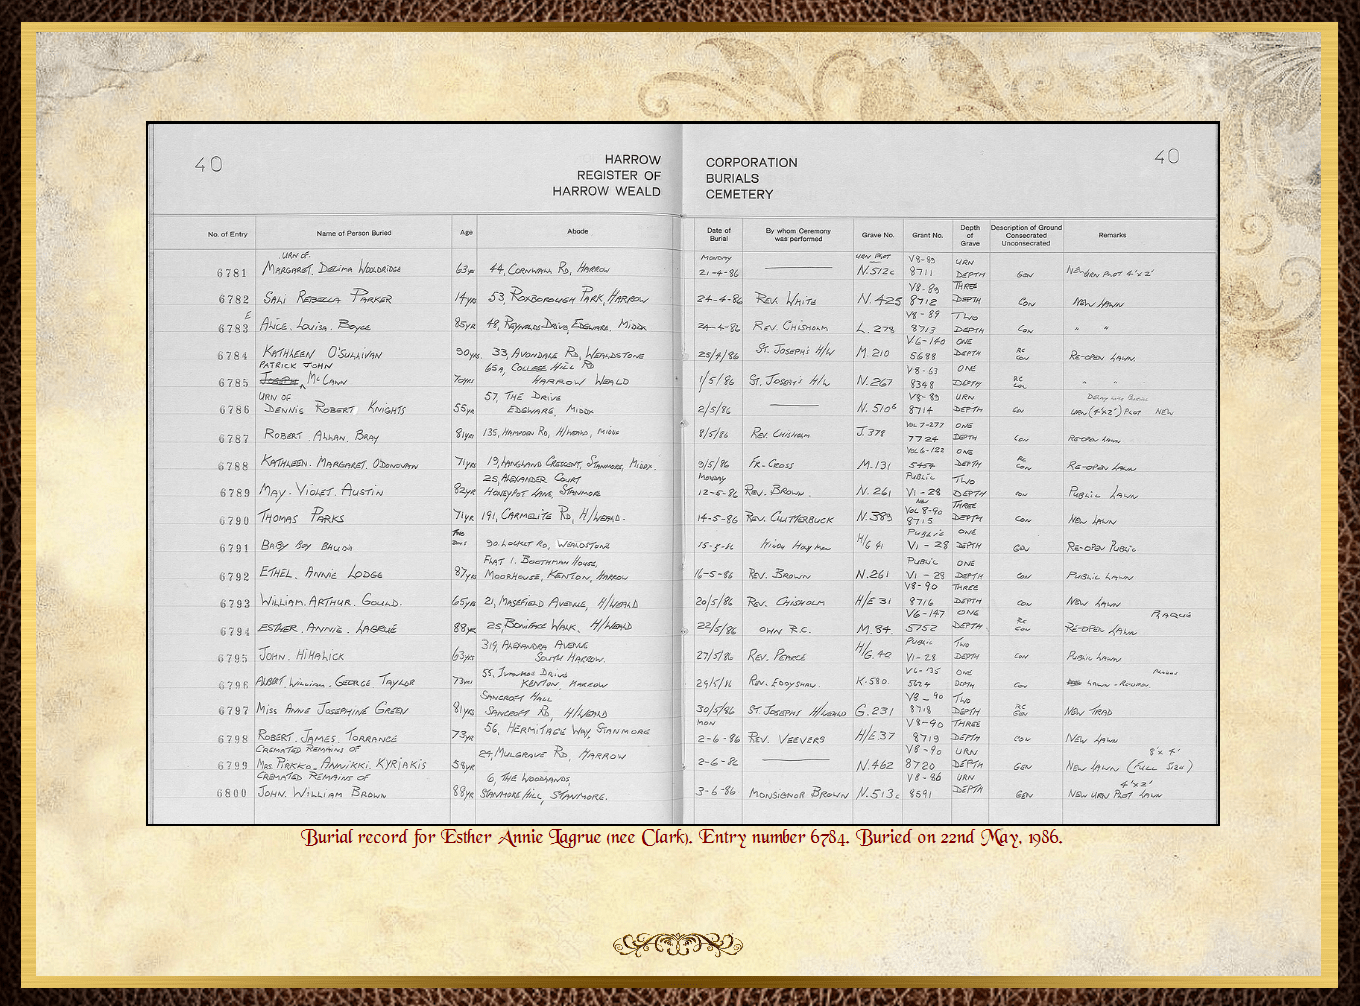 40
HARROW CORPORATION
REGISTER OF BURIALS
HARROW WEALD CEMETERY
40
No. of Entry Name of Person Buried Age Abode Date of Burial By whom Ceremony was performed Grave No. Grant No. Depth of Grave Description of Ground Consecrated Unconsecrated Remarks
URN OF MONDAY URN PLOT V8-89 URN
6781 MARGARET. DELIMA WOOLDRIDGE 63yr 44, CORNWALL RD, HARROW 21-4-86 N.512c 8711 DEPTH GEN NEW URN PLOT 4'x2'
V8-89 THREE
6782 SALI REBECCA PARKER 14yrs 53, ROXBOROUGH PARK, HARROW 24-4-86 REV. WHITE N.425 8712 DEPTH CON NEW LAWN
E V8-89 TWO
6783 ALICE. LOUISA. BOYCE 85yr 48, REYNOLDS DRIVE, EDGWARE. MIDDX 24-4-86 REV. CHISHOLM L.278 8713 DEPTH CON " "
V6-140 ONE
6784 KATHLEEN O'SULLIVAN 90yrs. 33, AVONDALE RD, WEALDSTONE 25/4/86 ST. JOSEPH'S H/W M.210 5688 DEPTH RC CON RE-OPEN LAWN.
PATRICK JOHN 65A, COLLEGE HILL RD V8-63 ONE
6785 JOSEPH McCANN 70yrs HARROW WEALD 1/5/86 ST. JOSEPH'S H/W N.267 8348 DEPTH RC CON " "
URN OF 57, THE DRIVE V8-89 URN
6786 DENNIS ROBERT KNIGHTS 55yr EDGWARE, MIDDX 2/5/86 N.510c 8714 DEPTH GEN URN (4'x2') PLOT NEW
VOL 7-277 ONE
6787 ROBERT. ALLAN. BRAY 81yr 135, HAMPDEN RD, H/WEALD, MIDDX 8/5/86 REV. CHISHOLM J.378 7724 DEPTH CON RE-OPEN LAWN
VOL 6-122 ONE
6788 KATHLEEN. MARGARET. O'DONOVAN 71yrs 19, LANGLAND CRESCENT, STANMORE, MIDDX. 9/5/86 FR-CROSS M.131 5454 DEPTH RC CON RE-OPEN LAWN
25, ALEXANDER COURT MONDAY PUBLIC TWO
6789 MAY. VIOLET. AUSTIN 82yr HONEYPOT LANE, STANMORE 12-5-86 REV. BROWN. N.261 V1-28 DEPTH CON PUBLIC LAWN
NEW VOL 8-90 THREE
6790 THOMAS PARKS 71yr 191, CARMELITE RD, H/WEALD. 14-5-86 REV. CLUTTERBUCK N.389 8715 DEPTH CON NEW LAWN
TWO DAYS PUBLIC ONE
6791 BABY BOY 90. LOCKET RD, WEALDSTONE 15-5-86 H/G 41 V1-28 DEPTH GEN RE-OPEN PUBLIC
FLAT 1. BOOTHMAN HOUSE, PUBLIC ONE
6792 ETHEL. ANNIE LODGE 87yrs MOORHOUSE, KENTON, HARROW 16-5-86 REV. BROWN N.261 V1-28 DEPTH CON PUBLIC LAWN
V8-90 THREE
6793 WILLIAM. ARTHUR. GOULD. 65yr 21, MASEFIELD AVENUE, H/WEALD 20/5/86 REV. CHISHOLM H/E 31 8716 DEPTH CON NEW LAWN
V6-147 ONE PLAQUE
6794 ESTHER. ANNIE. LAGRUE 88yr 25, BONIFACE WALK. H/WEALD 22/5/86 OWN R.C. M.84. 5752 DEPTH RC CON RE-OPEN LAWN
319, ALEXANDRA AVENUE PUBLIC TWO
6795 JOHN. HIHALICK 63yr SOUTH HARROW. 27/5/86 REV. PEARCE H/G.40 V1-28 DEPTH CON PUBLIC LAWN
55, DRIVE V6-135 ONE
6796 ALBERT. WILLIAM. GEORGE TAYLOR 73yrs KENTON, HARROW 29/5/86 REV. EDDYSHAW. K.580. 5624 DEPTH CON LAWN - REOPEN.
SANCROFT HALL V8-90 TWO
6797 MISS ANNE JOSEPHINE GREEN 81yrs SANCROFT RD, H/WEALD 30/5/86 ST JOSEPH'S H/WEALD G.231 8718 DEPTH RC GEN NEW TRAD
56, HERMITAGE WAY, STANMORE MON V8-90 THREE
6798 ROBERT. JAMES. TORRANCE 73yr 2-6-86 REV. VEEVERS H/E 37 8719 DEPTH CON NEW LAWN
CREMATED REMAINS OF 24, MULGRAVE RD, HARROW V8-90 URN 8'x 4'
6799 MRS. PIRKKO. ANNIKKI. KYRIAKIS 58yr 2-6-86 N.462 8720 DEPTH GEN NEW LAWN (FULL SIZE)
CREMATED REMAINS OF 6, THE WOODLANDS, V8-86 URN 4'x2'
6800 JOHN. WILLIAM BROWN 88yr STANMORE HILL, STANMORE. 3-6-86 MONSIGNOR BROWN N.513c 8591 DEPTH GEN NEW URN PLOT LAWN
Burial record for Esther Annie Lagrue (nee Clark). Entry number 6784. Buried on 22nd May, 1986.